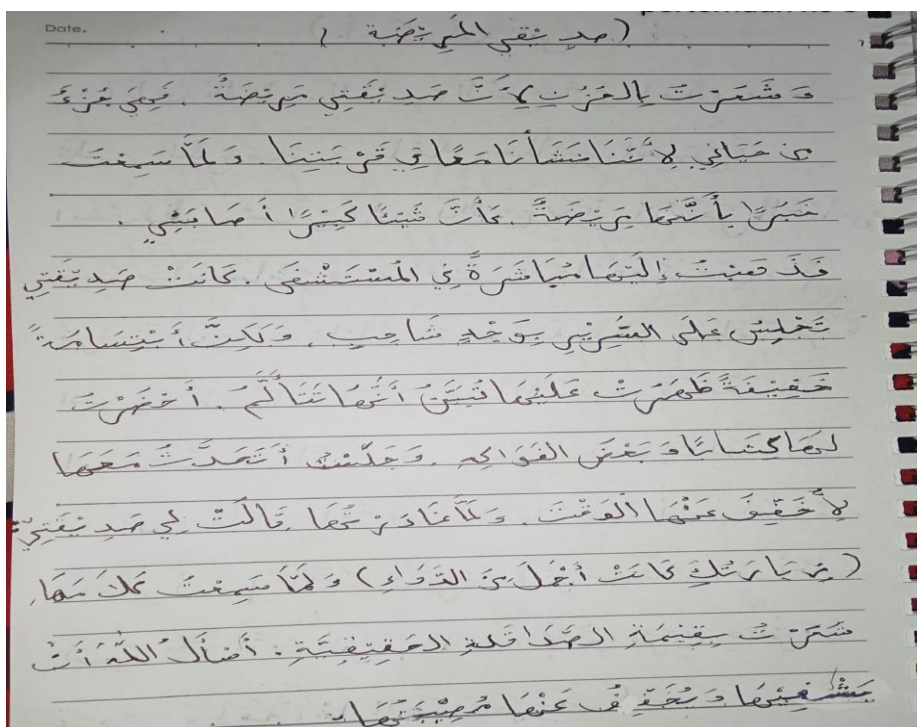 Date.
( صديقتي المريضة )
وَشَعَرْتُ بِالحُزْنِ لِأَنَّ صَدِيْقَتِي مَرِيْضَةٌ. فَهِيَ جُزْءٌ
مِن حَيَاتِي لِأَنَّنَا نَشَأْنَا مَعًا فِي قَرْيَتِنَا. وَلَمَّا سَمِعْتُ
خَبَرًا بِأَنَّهَا مَرِيْضَةً. كَأَنَّ شَيْئًا كَبِيْرًا أَصَابَنِي.
فَذَهَبْتُ إِلَيْهَا مُبَاشَرَةً فِي المُسْتَشْفَى. كَانَتْ صَدِيْقَتِي
تَجْلِسُ عَلَى السَّرِيْرِ بِوَجْهٍ شَاحِبٍ. وَلَكِنَّ أبْتِسَامَةً
خَفِيْفَةً ظَهَرَتْ عَلَيْهَا تُبَيِّنُ أَنَّهَا تَتَأَلَّمُ. أَحْضَرْتُ
لَهَا كِتَابًا وَبَعْضَ الفَوَاكِهِ. وَجَلَسْتُ أَتَحَدَّثُ مَعَهَا
لِأُخَفِّفَ عَنْهَا الوَقْتَ. وَلَمَّا غَادَرْتُهَا قَالَتْ لِي صَدِيْقَتِي:
(زِيَارَتُكِ كَانَتْ أَجْمَلَ مِنَ الدَّوَاءِ) وَلَمَّا سَمِعْتُ كَلَامَهَا.
شَعَرْتُ بِقِيْمَةِ الصَّدَاقَةِ الحَقِيْقِيَّةِ. أَسْأَلُ اللهَ أَنْ
يَشْفِيْهَا وَيُخَفِّفُ عَنْهَا مُصِيْبَتُهَا.